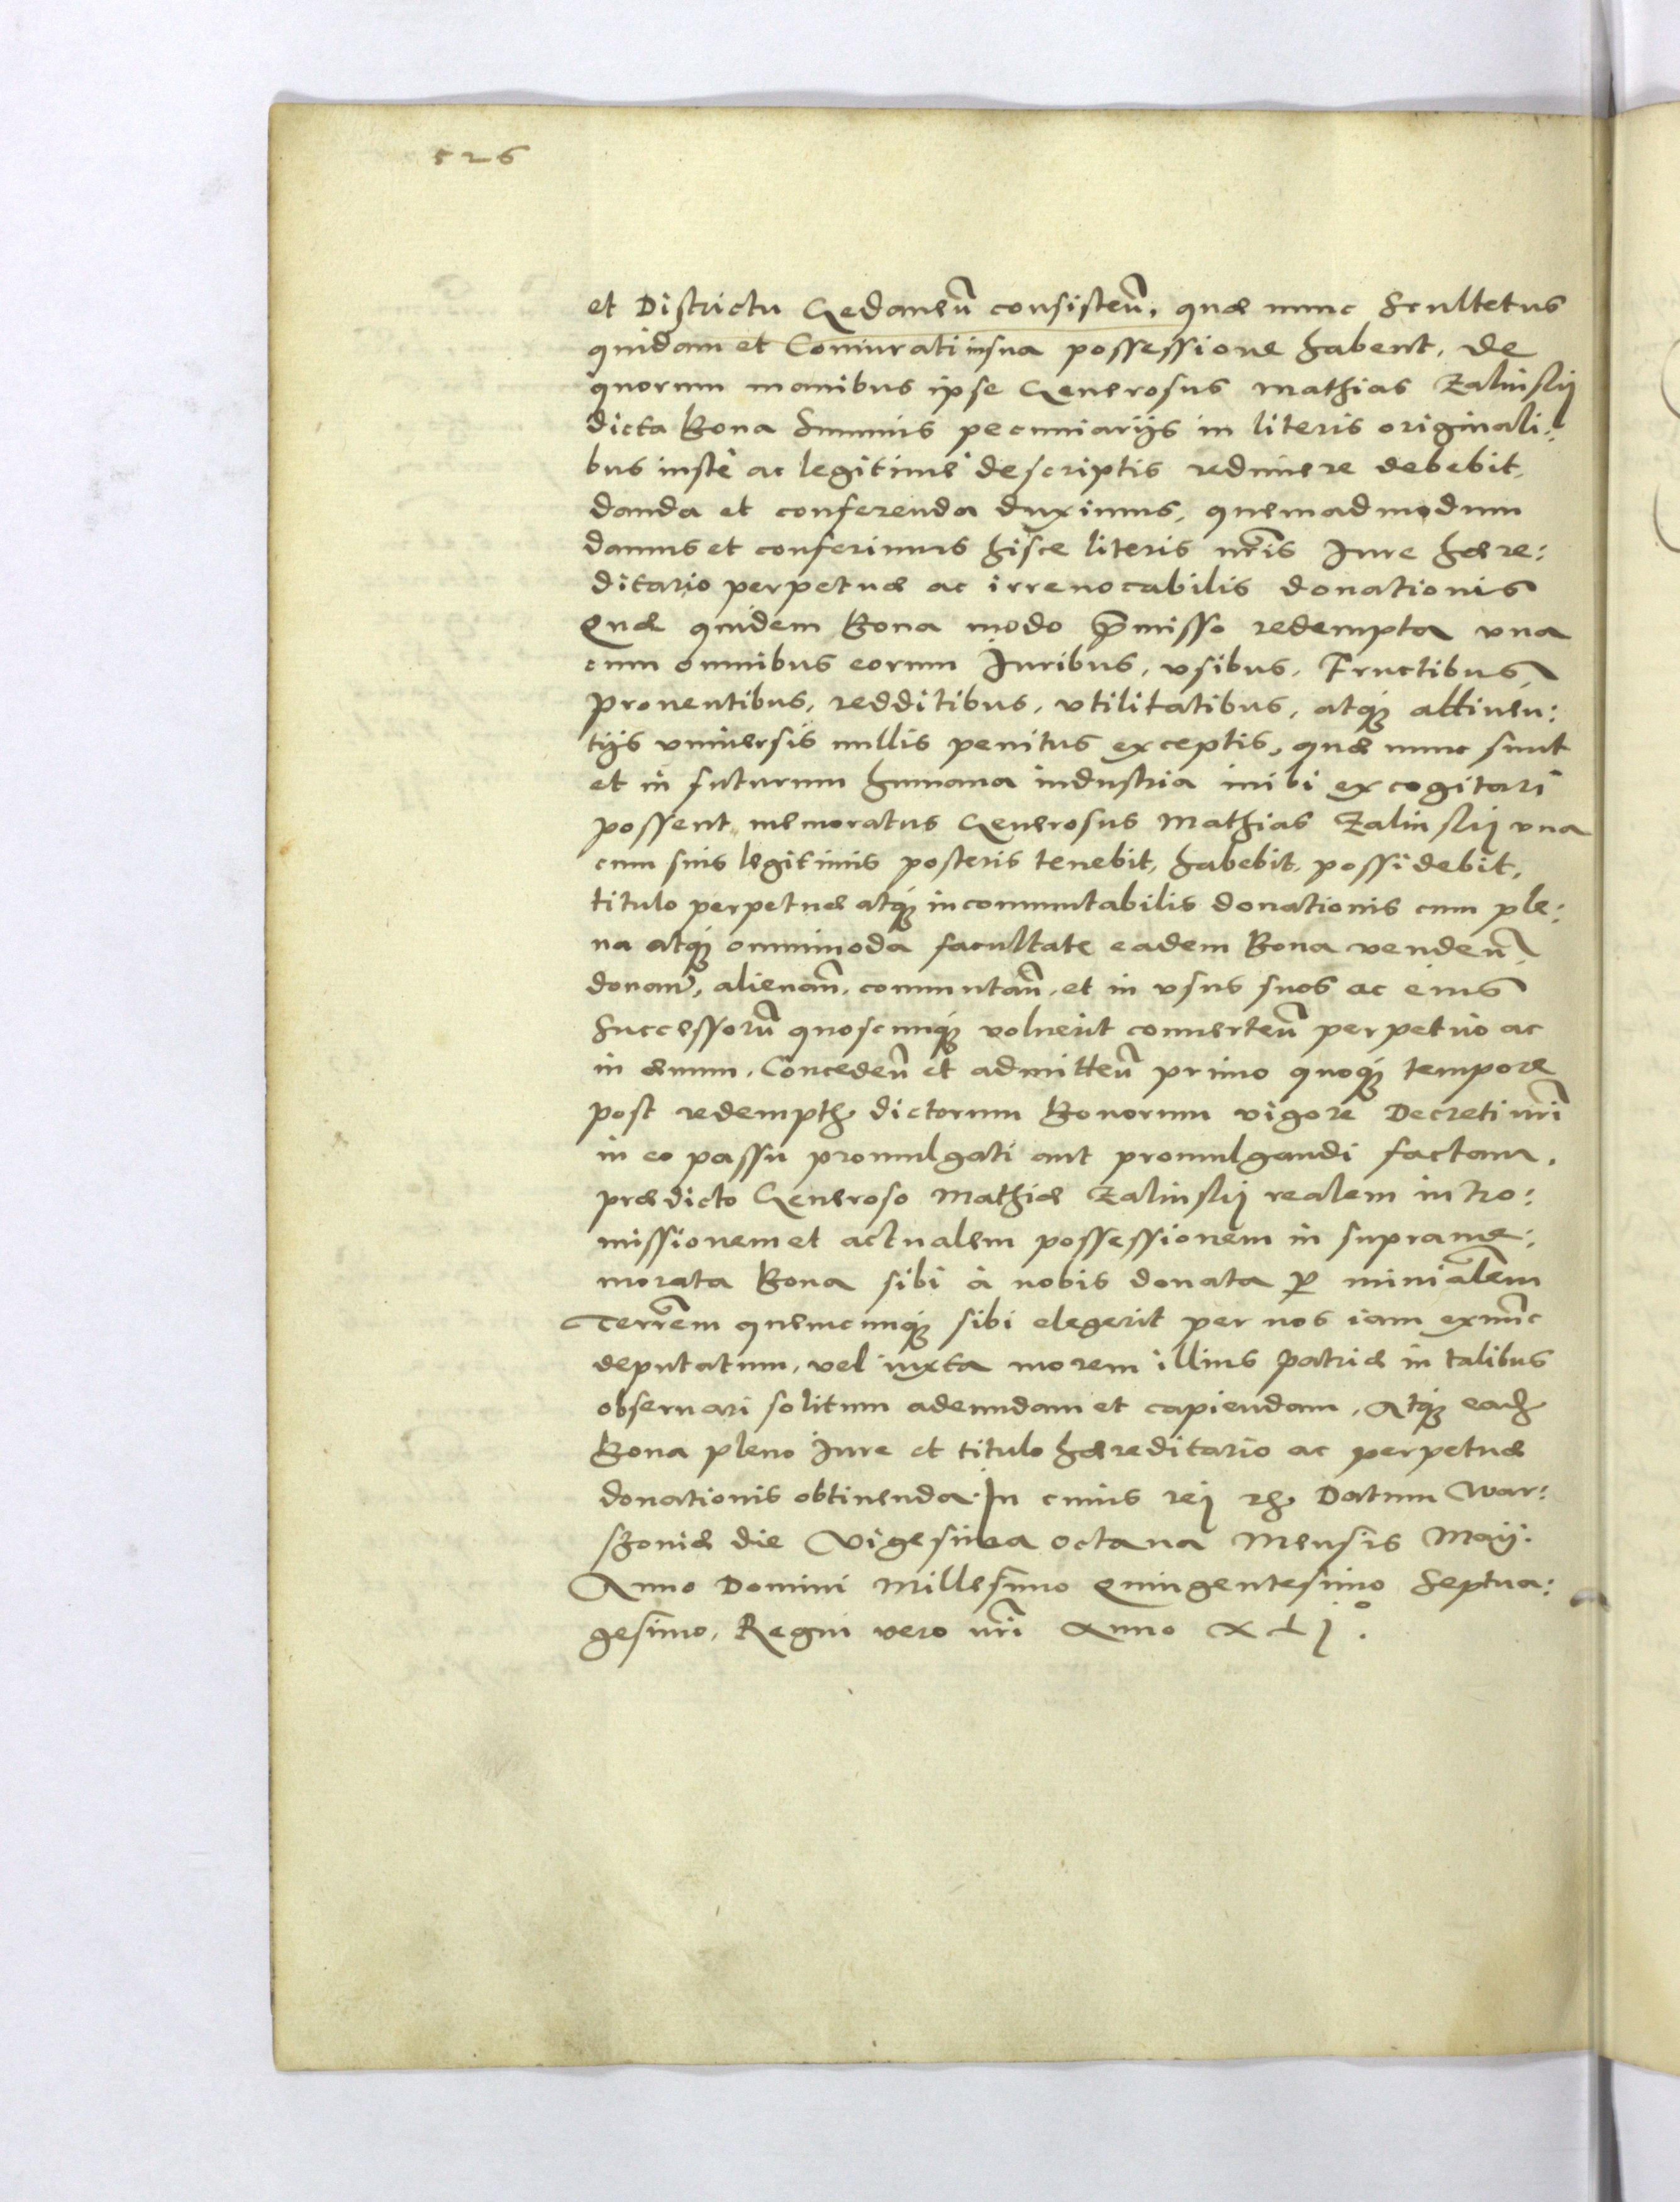 526
et Districtu Gedaneñ consisteñ, quæ nunc Scultetus
quidam et Coniurati in sua possessione habent, de
quorum manibus ipse Generosus Mathias Zalinskij
dicta Bona Summis pecuniarijs in literis originali:
bus iustè ac legitimè descriptis redimere debebit,
danda et conferenda duximus, quemadmodum
damus et conferimus hisce literis nr̃is Iure hære:
ditario perpetuæ ac irreuocabilis donationis
Quæ quidem Bona modo p̃misso redempta vna
cum omnibus eorum Iuribus, vsibus, Fructibus,
prouentibus, redditibus, vtilitatibus, atq; attinen:
tijs vniuersis nullis penitus exceptis, quæ nunc sunt
et in futurum humana industria inibi excogitari
possent, memoratus Generosus Mathias Zalinskij vna
cum suis legitimis posteris tenebit, habebit, possidebit,
titulo perpetuæ atq; incommutabilis donationis cum ple:
na atq; omnimoda facultate eadem Bona vendeñ,
donañ, alienañ, commutañ, et in vsus suos ac eius
Successorũ quoscunq; voluerit conuerteñ perpetuò ac
in æuum. Concedeñ et admitteñ primo quoq; tempore
post redempt. dictorum Bonorum vigore Decreti nr̃i
in eo passu promulgati aut promulgandi factam,
prædicto Generoso Mathiæ Zalinskij realem intro:
missionem et actualem possessionem in suprame:
morata Bona sibi à nobis donata p̱ minialẽm
Terrẽm quemcunq; sibi elegerit per nos iam exnũc
deputatum, vel iuxta morem illius Patriæ in talibus
obseruari solitum adeundam et capiendam, Atq; ead.
Bona pleno Iure et titulo hæreditario ac perpetuæ
donationis obtinenda. In cuius rej &c. Datum War:
shoniæ die Vigesima octaua Mensis Maij.
Anno Domini Millesimo Quingentesimo Septua:
gesimo, Regni vero nr̃i Anno XLj°.